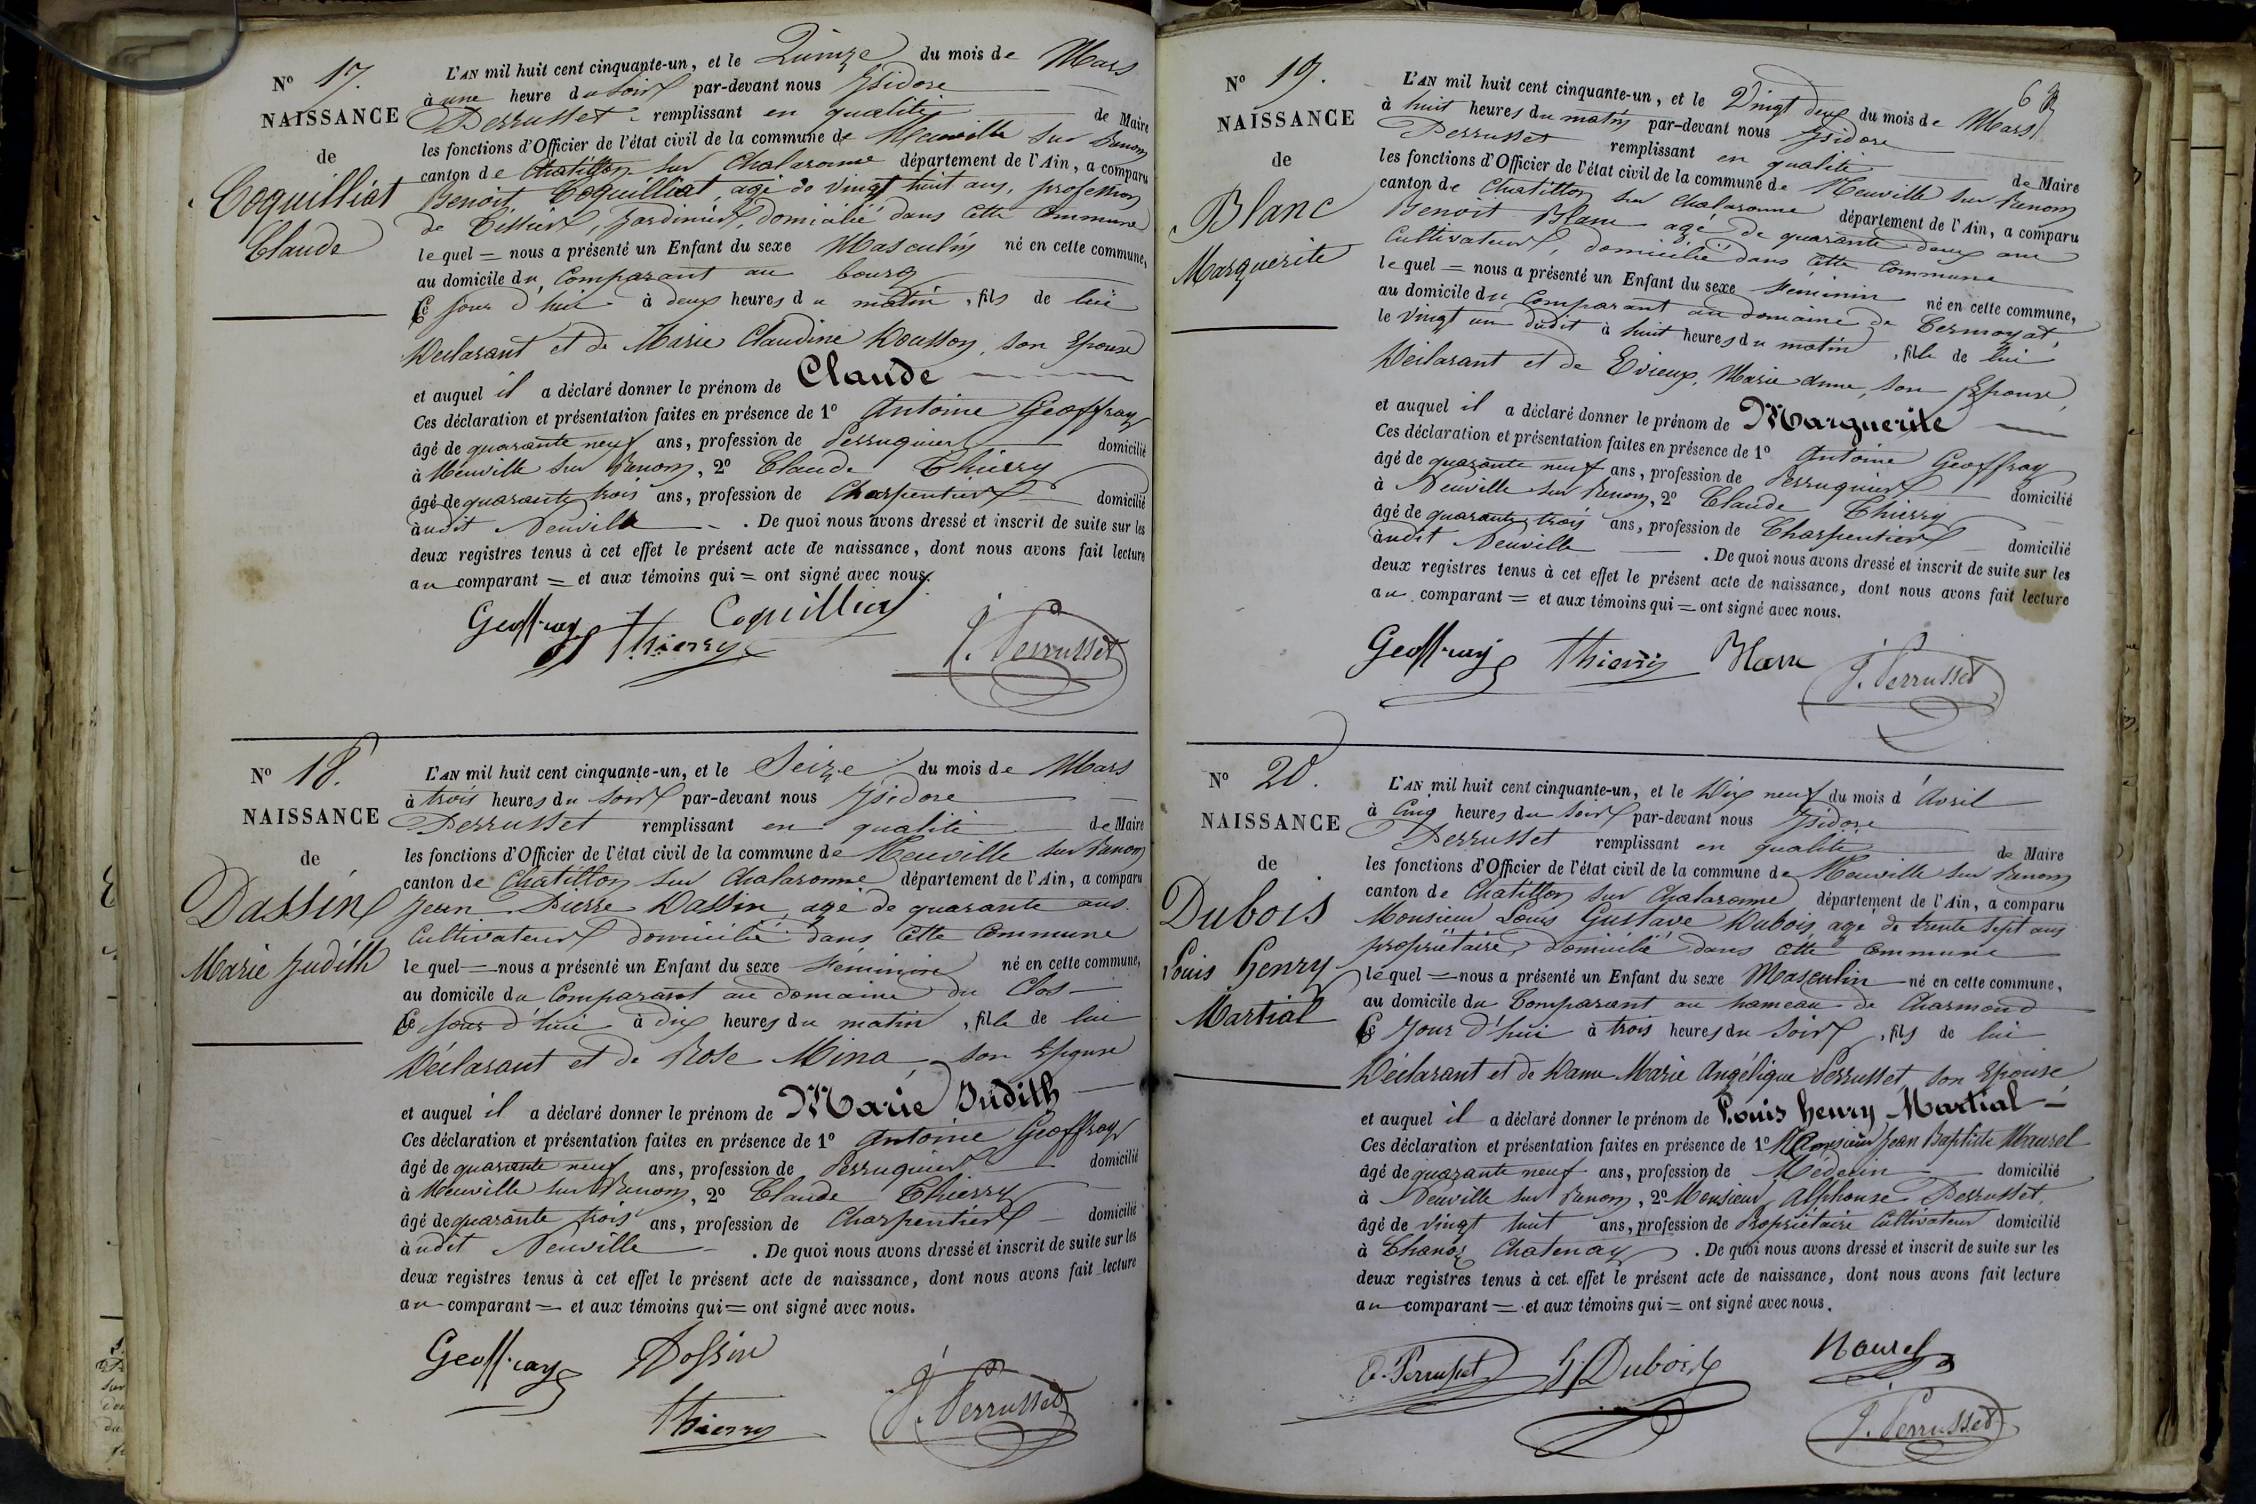 N° 17.
NAISSANCE
de
Coquilliat
Claude
L'AN mil huit cent cinquante-un, et le Quinze du mois de Mars
à une heure du soir par-devant nous Isidore
Perrusset remplissant en qualité de Maire
les fonctions d'Officier de l'état civil de la commune de Neuville sur Renom
canton de Chatillon sur Chalaronne département de l'Ain, a comparu
Benoit Coquilliat, agé de vingt huit ans, profession
de Tissier, jardinier, domicilié dans cette Commune
lequel = nous a présenté un Enfant du sexe Masculin né en cette commune,
au domicile du Comparant au bourg
Ce jour d'hui à deux heures du matin, fils de lui
Déclarant et de Marie Claudine Dousson, son Epouse
et auquel il a déclaré donner le prénom de Claude
Ces déclaration et présentation faites en présence de 1° Antoine Geoffray
âgé de quarante neuf ans, profession de Perruquier domicilié
à Neuville sur Renom, 2° Claude Thierry
âgé de quarante trois ans, profession de Charpentier domicilié
audit Neuville. De quoi nous avons dressé et inscrit de suite sur les
deux registres tenus à cet effet le présent acte de naissance, dont nous avons fait lecture
au comparant = et aux témoins qui = ont signé avec nous.
Geoffray Thierry Coquilliat J. Perrusset
N° 18.
NAISSANCE
de
Dassin
Marie Judith
L'AN mil huit cent cinquante-un, et le Seize du mois de Mars
à trois heures du soir par-devant nous Isidore
Perrusset remplissant en qualité de Maire
les fonctions d'Officier de l'état civil de la commune de Neuville sur Renom
canton de Chatillon sur Chalaronne département de l'Ain, a comparu
Jean Pierre Dassin, agé de quarante ans
Cultivateur domicilié dans cette Commune
lequel = nous a présenté un Enfant du sexe féminin né en cette commune,
au domicile du Comparant au domaine du Clos
Ce jour d'hui à dix heures du matin, fille de lui
Déclarant et de Rose Mina, son Epouse
et auquel il a déclaré donner le prénom de Marie Judith
Ces déclaration et présentation faites en présence de 1° Antoine Geoffray
âgé de quarante neuf ans, profession de Perruquier domicilié
à Neuville sur Renom, 2° Claude Thierry
âgé de quarante trois ans, profession de Charpentier domicilié
audit Neuville. De quoi nous avons dressé et inscrit de suite sur les
deux registres tenus à cet effet le présent acte de naissance, dont nous avons fait lecture
au comparant = et aux témoins qui = ont signé avec nous.
Geoffray Dassin
Thierry J. Perrusset
N° 19.
NAISSANCE
de
Blanc
Marguerite
L'AN mil huit cent cinquante-un, et le Vingt deux du mois de Mars
à huit heures du matin par-devant nous Isidore
Perrusset remplissant en qualité de Maire
les fonctions d'Officier de l'état civil de la commune de Neuville sur Renom
canton de Chatillon sur Chalaronne département de l'Ain, a comparu
Benoit Blanc agé de quarante deux ans
Cultivateur, domicilié dans cette Commune
lequel = nous a présenté un Enfant du sexe féminin né en cette commune,
au domicile du Comparant au domaine de Termoyat,
le vingt un dudit à huit heures du matin, fille de lui
Déclarant et de Evieux, Marie Anne, son Epouse,
et auquel il a déclaré donner le prénom de Marguerite
Ces déclaration et présentation faites en présence de 1° Antoine Geoffray
âgé de quarante neuf ans, profession de Perruquier domicilié
à Neuville sur Renom, 2° Claude Thierry
âgé de quarante trois ans, profession de Charpentier domicilié
audit Neuville. De quoi nous avons dressé et inscrit de suite sur les
deux registres tenus à cet effet le présent acte de naissance, dont nous avons fait lecture
au comparant = et aux témoins qui = ont signé avec nous.
Geoffray Thierry Blanc J. Perrusset
N° 20.
NAISSANCE
de
Dubois
Louis Henry
Martial
L'AN mil huit cent cinquante-un, et le Dix neuf du mois d'Avril
à Cinq heures du soir par-devant nous Isidore
Perrusset remplissant en qualité de Maire
les fonctions d'Officier de l'état civil de la commune de Neuville sur Renom
canton de Chatillon sur Chalaronne département de l'Ain, a comparu
Monsieur Louis Gustave Dubois, agé de trente sept ans
propriétaire, domicilié dans cette commune
lequel = nous a présenté un Enfant du sexe Masculin né en cette commune,
au domicile du Comparant au hameau de Charmond
Ce Jour d'hui à trois heures du soir, fils de lui
Déclarant et de Dame Marie Angélique Perrusset, son Epouse
et auquel il a déclaré donner le prénom de Louis henry Martial
Ces déclaration et présentation faites en présence de 1° Monsieur Jean Baptiste Maurel
âgé de quarante neuf ans, profession de Médecin domicilié
à Neuville sur Renom, 2° Monsieur Alphonse Perrusset
âgé de vingt huit ans, profession de Propriétaire Cultivateur domicilié
à Chanoz Chatenay. De quoi nous avons dressé et inscrit de suite sur les
deux registres tenus à cet effet le présent acte de naissance, dont nous avons fait lecture
au comparant = et aux témoins qui = ont signé avec nous.
Perrusset G Dubois Maurel
J. Perrusset